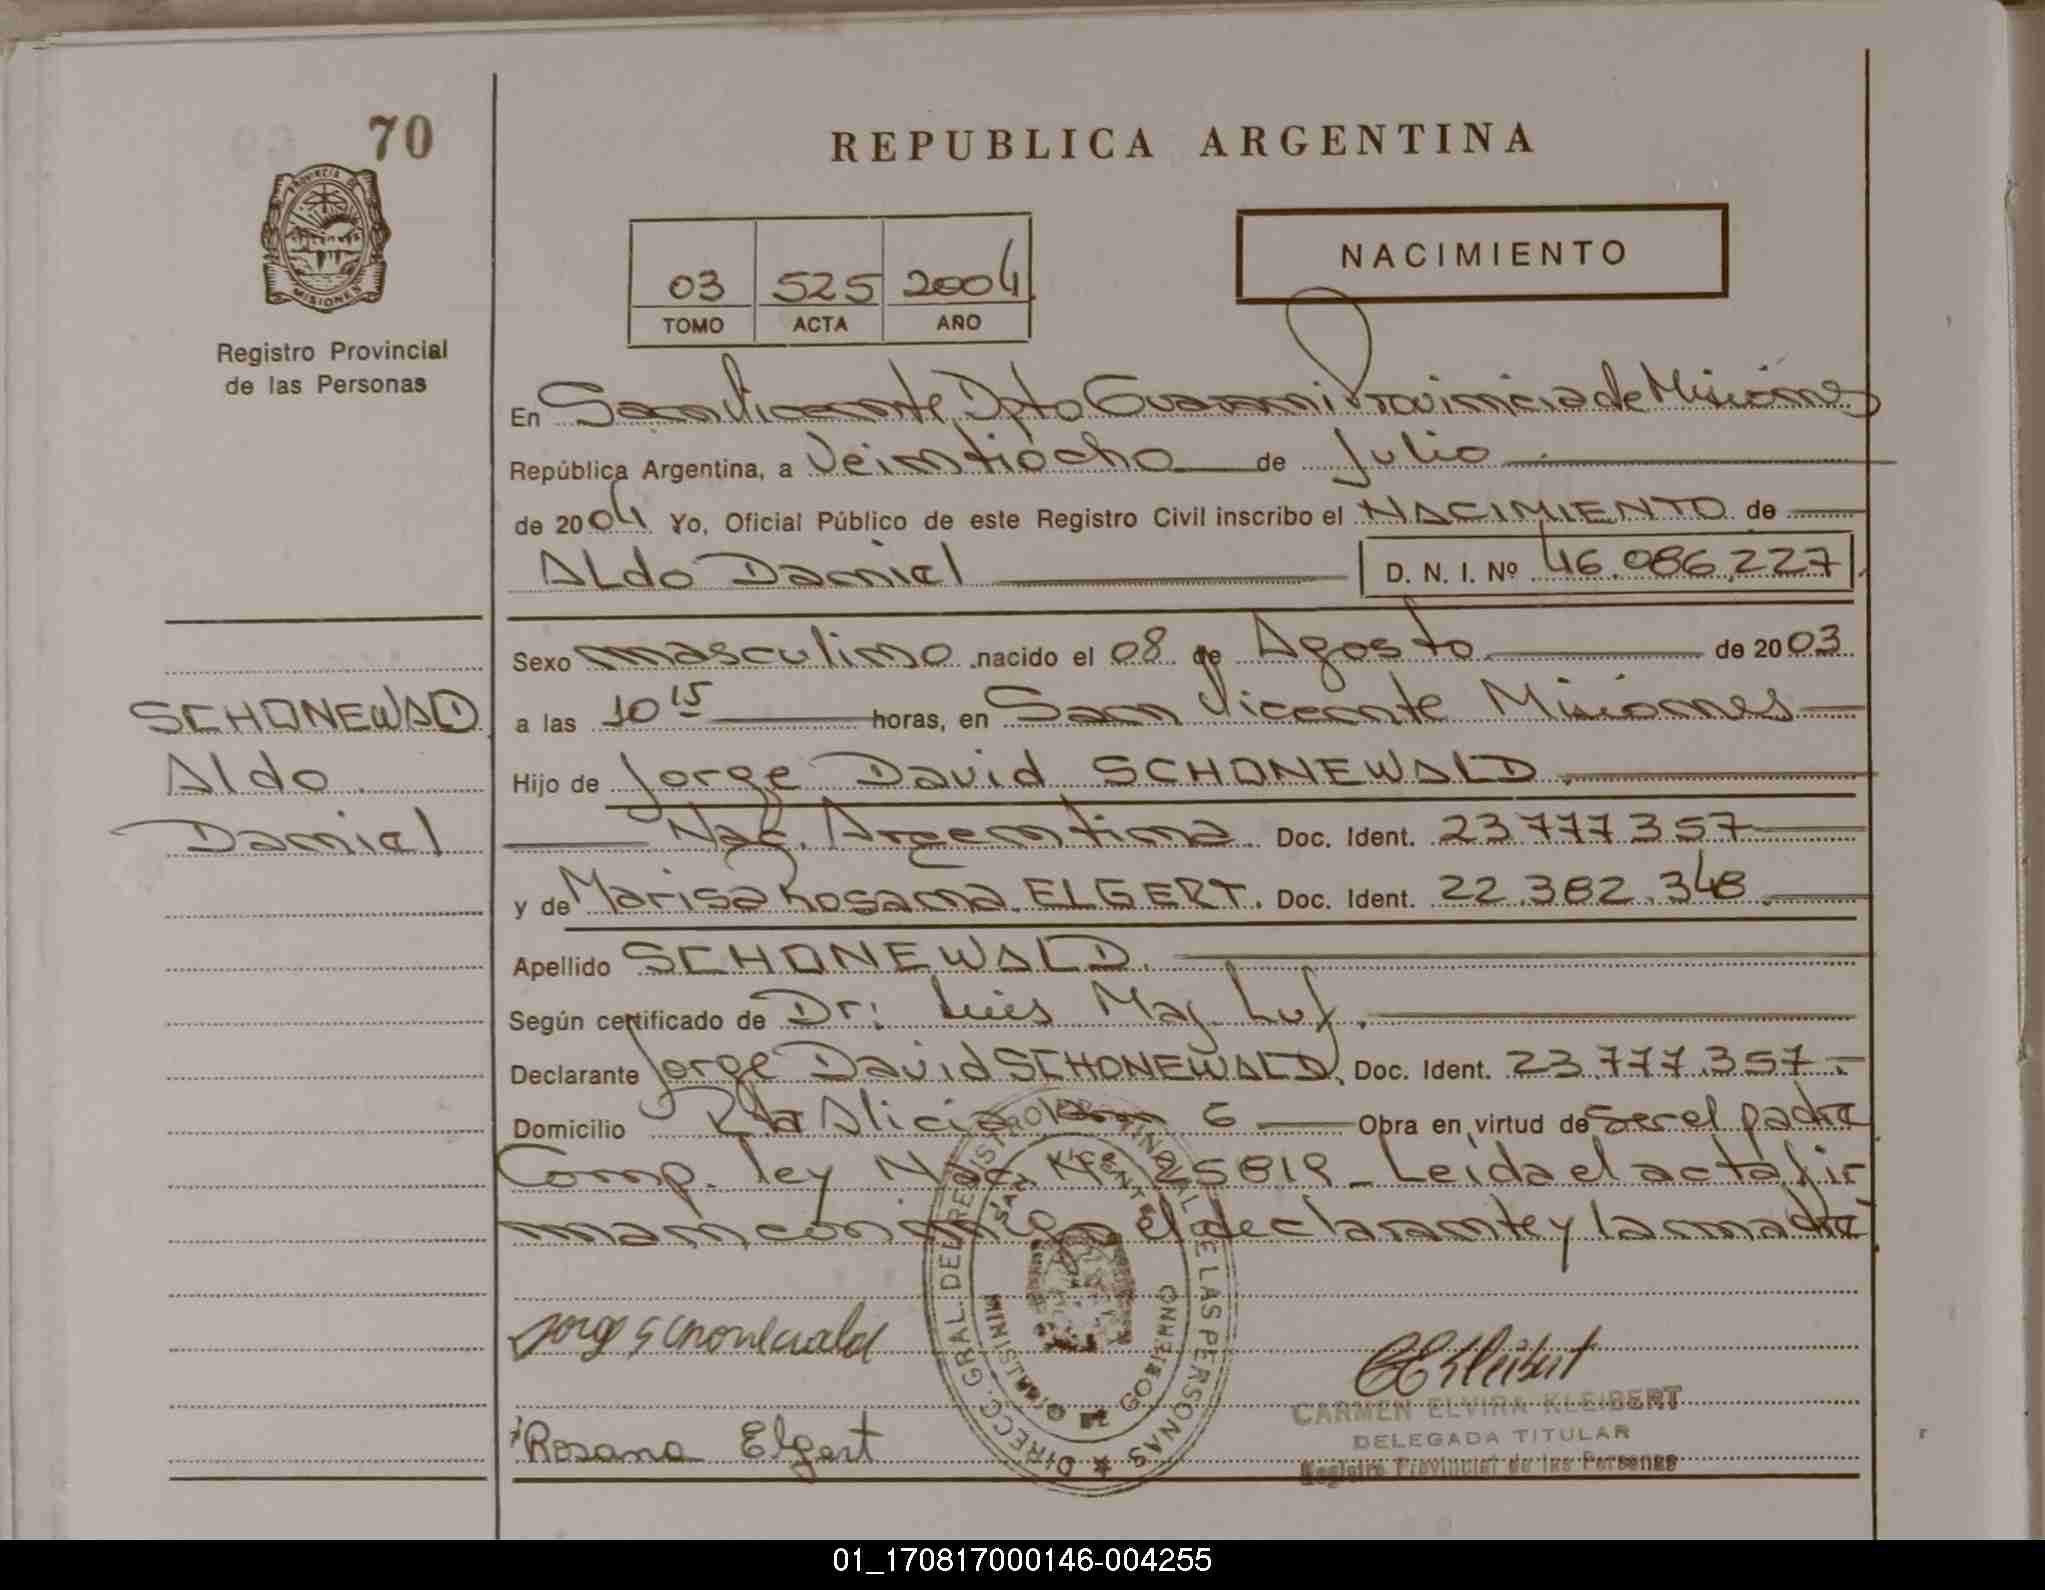 70
PROVINCIA DE
MISIONES
Registro Provincial
de las Personas
REPUBLICA ARGENTINA
03 525 2004
TOMO ACTA AÑO
NACIMIENTO
En San Vicente Dpto Guarani Provincia de Misiones
República Argentina, a Veintiocho de Julio
de 2004 Yo, Oficial Público de este Registro Civil inscribo el NACIMIENTO de
ALdo Daniel D. N. I. Nº 46.086.227
Sexo masculino nacido el 08 de Agosto de 2003
a las 10 15 horas, en San Vicente Misiones
SCHONEWALD
Aldo
Daniel
Hijo de Jorge David SCHONEWALD
Nac. Argentina. Doc. Ident. 23.777.357
y de Marisa Rosana ELGERT. Doc. Ident. 22.382.348
Apellido SCHONEWALD.
Según certificado de Dr: Luis Maj Luf.
Declarante Jorge David SCHONEWALD. Doc. Ident. 23.777.357.-
Domicilio Rta Alicia Km 6 Obra en virtud de ser el padre
Comp. ley Nac. Nº 25819_ Leida el acta fir
man conmigo el declarante y la madre
DIRECC. GRAL. DEL REGISTRO PROVINCIAL DE LAS PERSONAS
SAN VICENTE
Jorge Schonewald
CEKleibert
CARMEN ELVIRA KLEIBERT
DELEGADA TITULAR
Registro Provincial de las Personas
Rosana Elgert
01_170817000146-004255